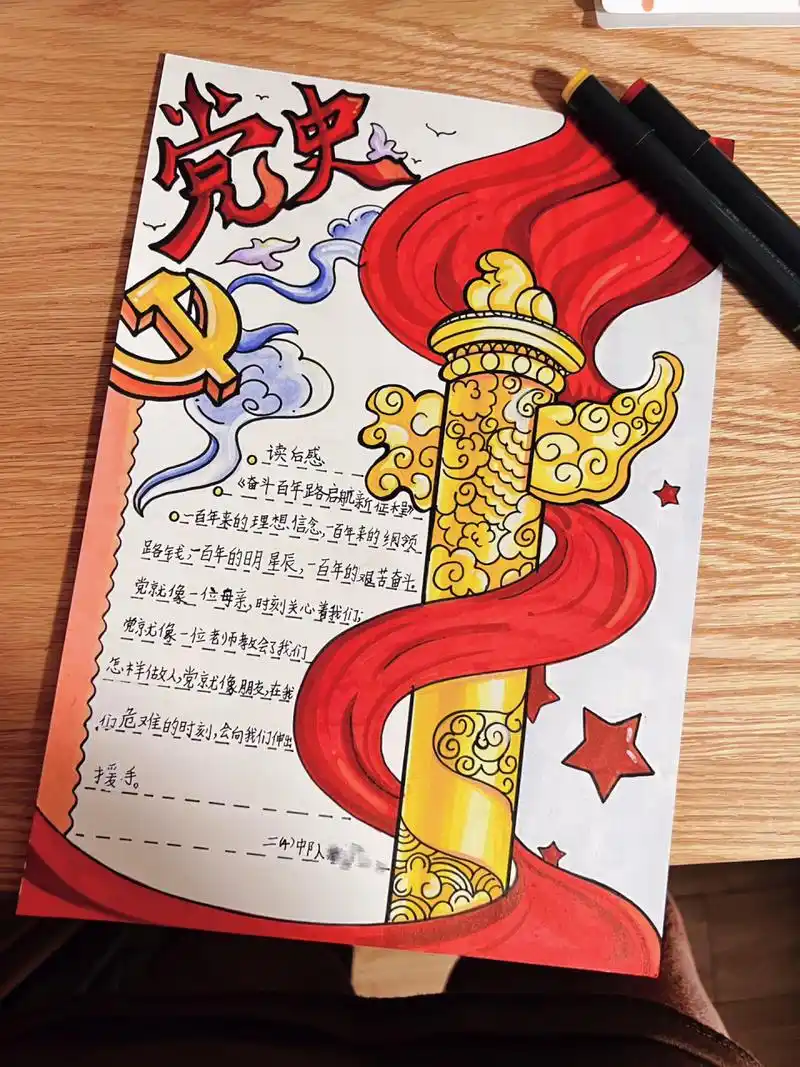 党史
读后感
《奋斗百年路启航新征程》
一百年来的理想信念,一百年来的纲领
路线,一百年的明星辰,一百年的艰苦奋斗.
党就像一位母亲,时刻关心着我们;
党就像一位老师教会了我们
怎样做人,党就像朋友,在我
们危难的时刻,会向我们伸出
援手。
二(4)中队